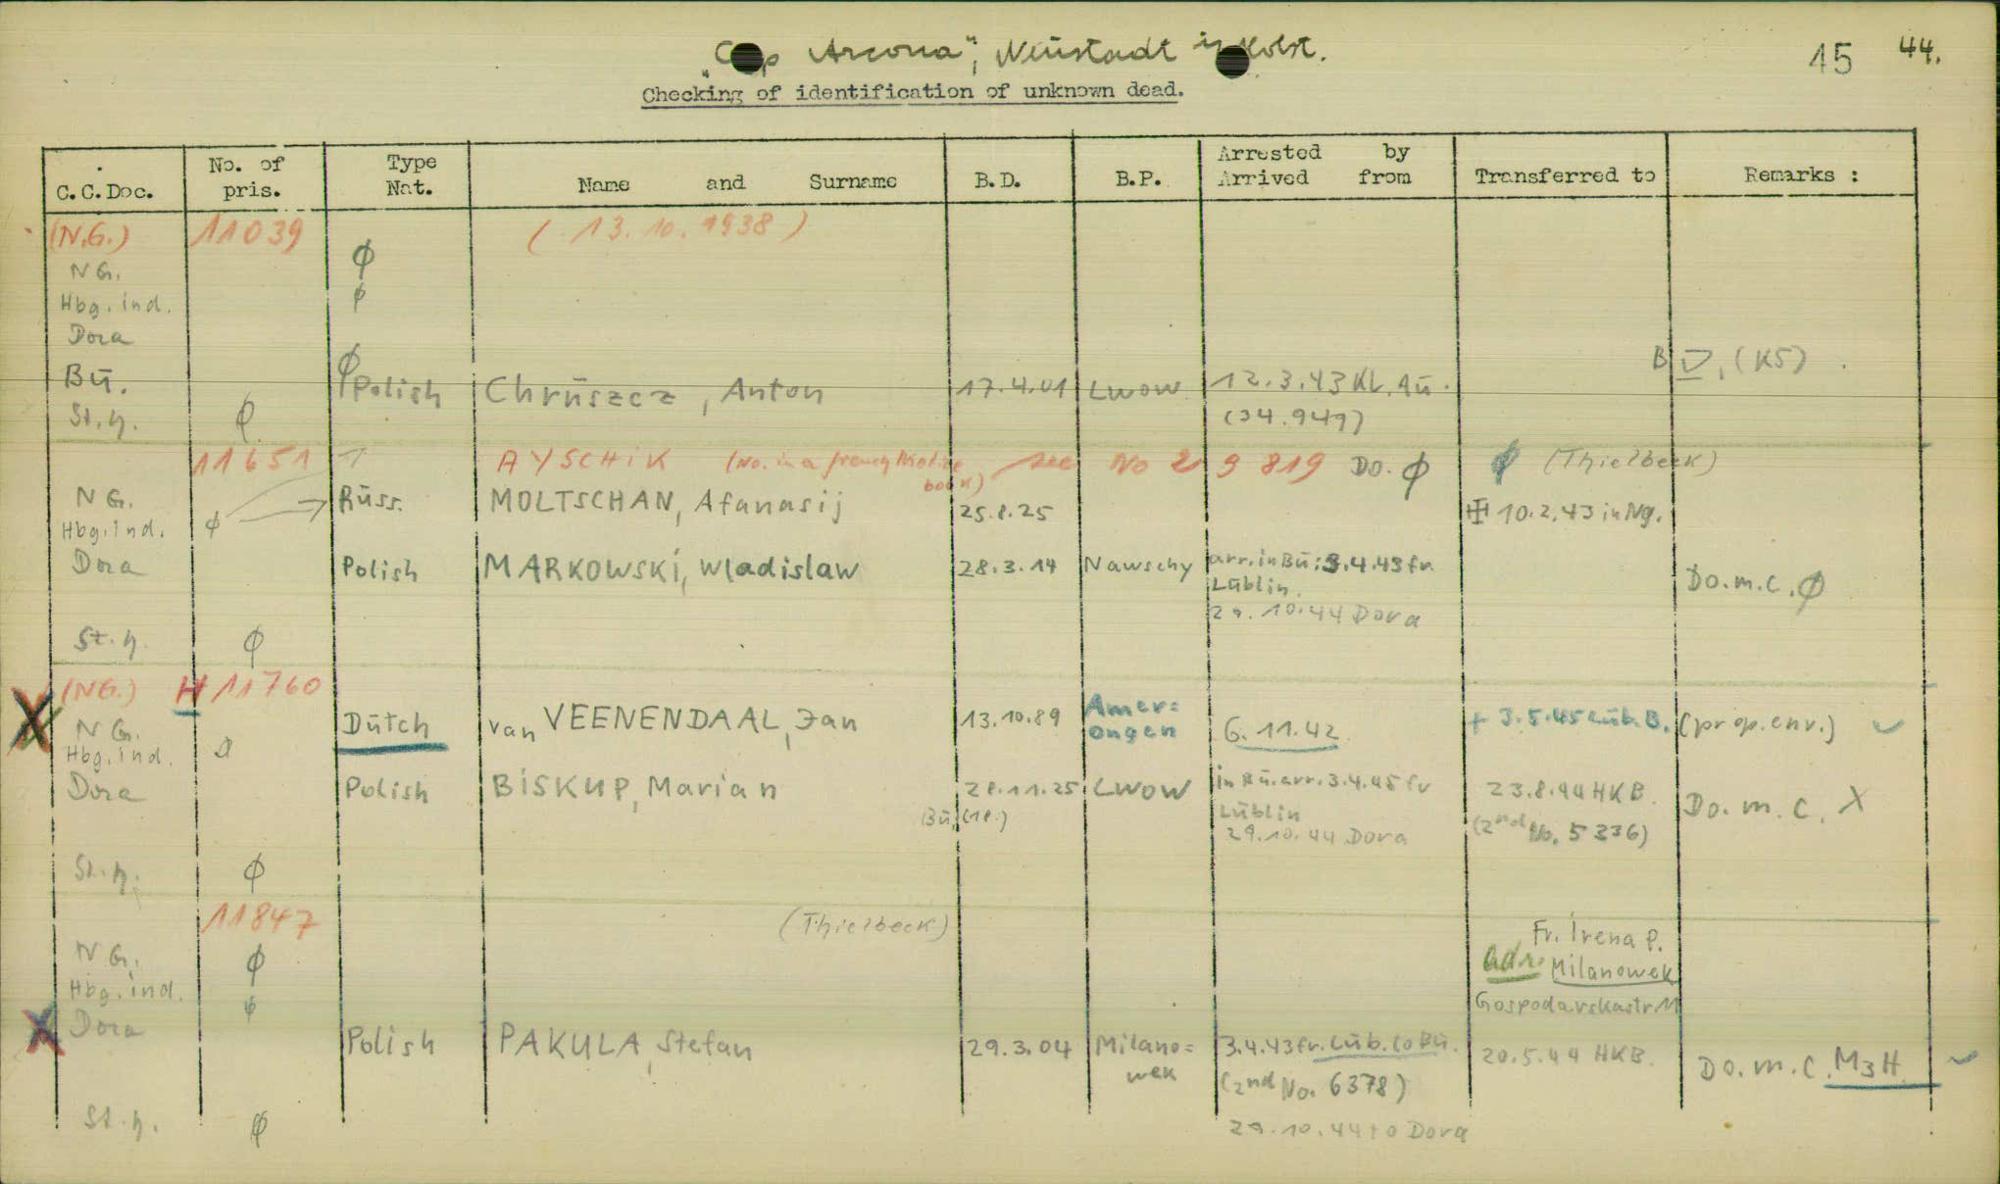 "Cap Arcona", Neustadt in Holst. 15 44.
Checking of identification of unknown dead.
C.C.Doc. No. of pris. Type Nat. Name and Surname B.D. B.P. Arrested by Arrived from Transferred to Remarks :
(N.G.) 11039 (13.10.1938)
NG. ϕ
Hbg. ind. ϕ
Dora
Bü. ϕ Polish Chruszcz, Anton 17.4.01 Lwow 12.3.43 KL. Au. B V, (K5)
St. h. ϕ (34.947)
11651 1 AYSCHIK (No. in a french Notice book) see No 29819 Do. ϕ ϕ (Thielbeck)
NG. Russ. MOLTSCHAN, Afanasij 25.8.25 10.2.43 in Ng.
Hbg. ind. ϕ
Dora Polish MARKOWSKI, Wladislaw 28.3.14 Nawschy arr. in Bu: 3.4.43 fr. Lublin. Do. m. C. ϕ
29.10.44 Dora
St. h. ϕ
(NG.) H 11760
NG. Dutch van VEENENDAAL, Jan 13.10.89 Amer=ongen 6.11.42 + 3.5.45 Lüb. B. (prop. env.)
Hbg. ind.
Dora Polish BISKUP, Marian 28.11.25 Lwow in Bu. arr. 3.4.45 fr Lublin 23.8.44 HKB. Do. m. C. X
Bu. (18.) 29.10.44 Dora (2nd No. 5336)
St. h. ϕ
11847 (Thielbeck)
NG. ϕ Fr. Irena P.
Hbg. ind. ϕ adr. Milanowek
Dora Gospodarskastr 11
Polish PAKULA, Stefan 29.3.04 Milano=wek 3.4.43 fr. Lub. to Bu. 20.5.44 HKB. Do. m. C. M3H
(2nd No. 6378)
St. h. ϕ 29.10.44 to Dora